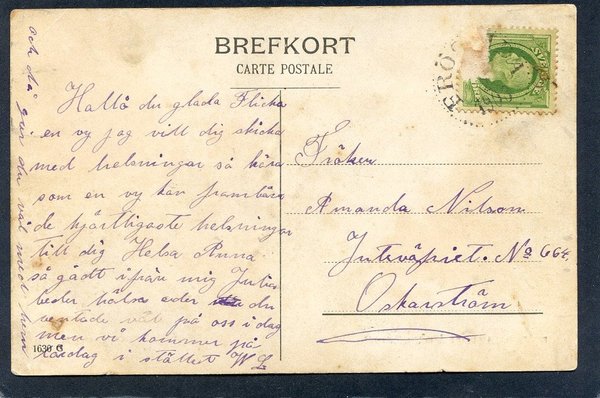 BREFKORT
CARTE POSTALE
Hallå du glada Flicka
en vy jag vill dig skicka
med helsningar så kära
som en vy kan frambära
de hjärtligaste helsningar
till dig Helsa Anna
så gådt ifrån mig Julia
beder hälsa eder du
ventade väl på oss i dag
men vi kommer på
lördag i stället W L
och då går du väl med hem
Fröken
Amanda Nilson
Jutväfriet. No 664.
Oskarström
1630 G
SVERIGE